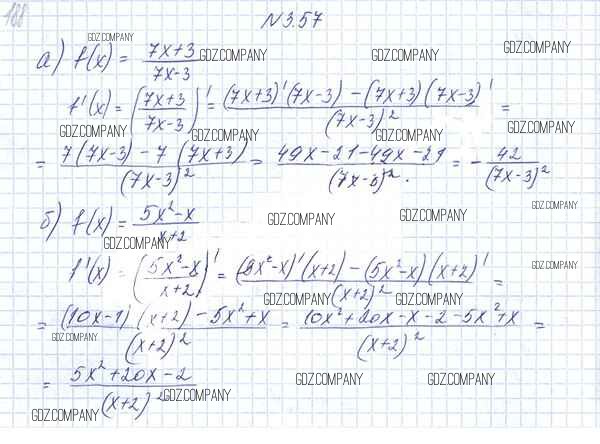 188
№3.57
GDZ.COMPANY
а) f(x) = (7x+3)/(7x-3) GDZ.COMPANY GDZ.COMPANY GDZ.COMPANY
f'(x) = ((7x+3)/(7x-3))' = ((7x+3)'(7x-3) - (7x+3)(7x-3)')/(7x-3)² =
GDZ.COMPANY GDZ.COMPANY GDZ.COMPANY GDZ.COMPANY
= (7(7x-3) - 7(7x+3))/(7x-3)² = (49x-21-49x-21)/(7x-3)² = - 42/(7x-3)²
б) f(x) = (5x²-x)/(x+2) GDZ.COMPANY GDZ.COMPANY GDZ.COMPANY
GDZ.COMPANY
f'(x) = ((5x²-x)/(x+2))' = ((5x²-x)'(x+2) - (5x²-x)(x+2)')/(x+2)² =
GDZ.COMPANY GDZ.COMPANY GDZ.COMPANY
= ((10x-1)(x+2) - 5x²+x)/(x+2)² = (10x²+20x-x-2-5x²+x)/(x+2)² =
GDZ.COMPANY
= (5x²+20x-2)/(x+2)² GDZ.COMPANY GDZ.COMPANY GDZ.COMPANY
GDZ.COMPANY